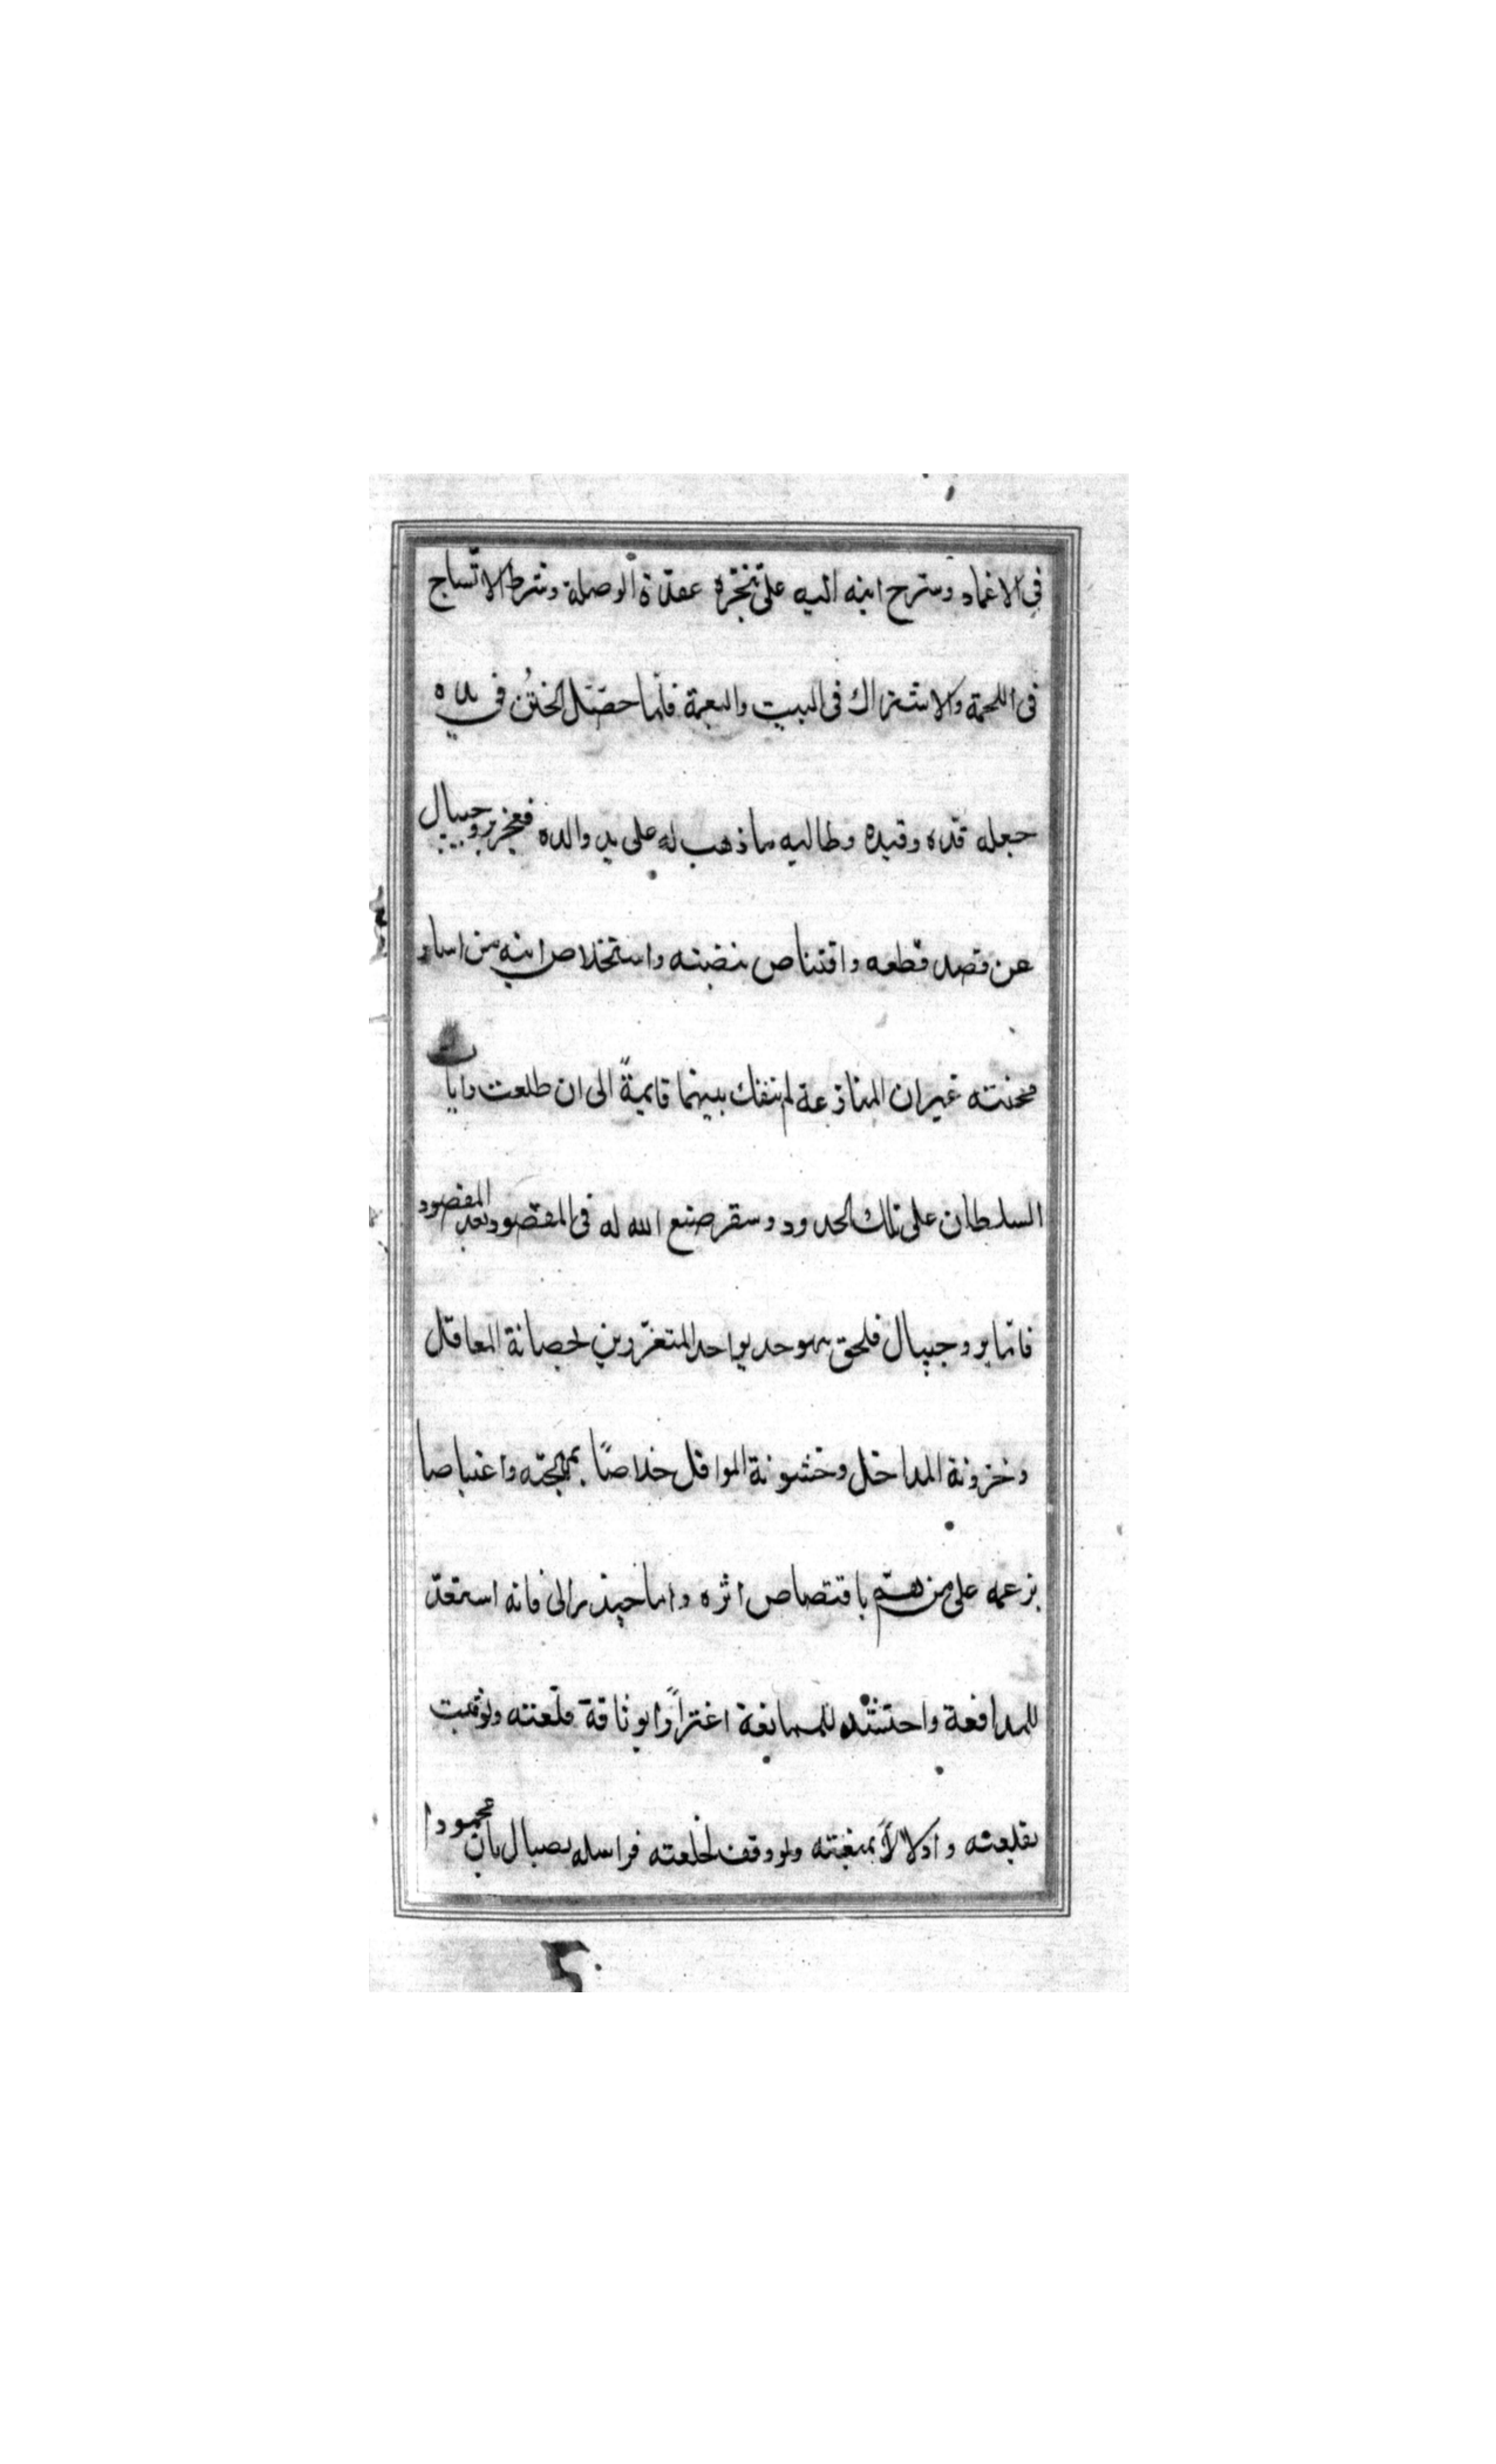 في الاغماد وسرح ابنه اليه على تنجزه عقدة الوصلة وشرط الاتساج
في اللحمة والاشتراك في البيت والنعمة فلما حصل الختن في يده
جعله قده وقيده وطالبه بما ذهب له على يد والده فعجز بروجيبال
عن قصد قطعه واقتناص بنضبته واستخلاص ابنه من اسار
محنته غير ان المنازعة لم تنفك بينهما قايمةً الى ان طلعت رايات
السلطان على تلك الحدود وسقر صنع الله له في المقصود بعد المقصود
فاما بروجيبال فلحق بهوجديو احد المتعززين لحصانة المعاقل
وخزونة المداخل وخشونة المواقل خلاصًا بمهجته واعتياصا
بزعمه على من هم باقتصاص اثره واما جندرالى فانه استعد
للمدافعة واحتشد للممانعة اغترارًا بوثاقة قلعته
بقلعته وادلالاً بمنعته ولو وقف لخلعته فراسله بصبال بان محمودا